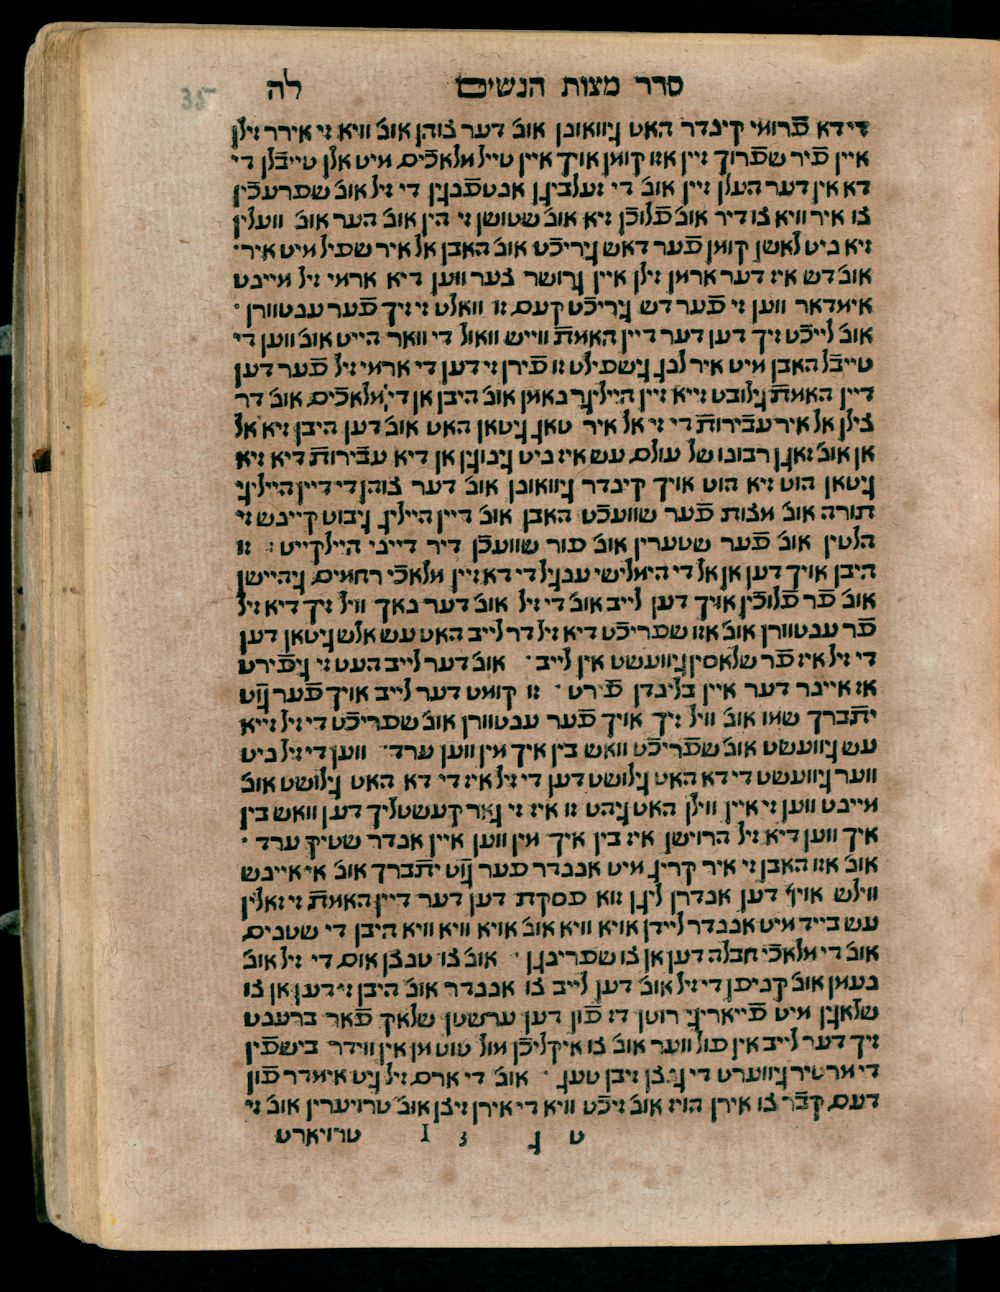 סדר מצות הנשים לה
35
די דא פֿרומי קינדר האט גיוואונן אונ' דער צוהן אונ' וויא זי אירר זילן
איין פֿיר שפֿרוך זיין אזו קומן אויך איין טייל מלאכֿים מיט אלן טייבֿלן די
דא אין דער העלן זיין אונ' די זעלביגן אנטפֿנגין די זיל אונ' שפרעכֿין
צו איר וויא צו דיר אונ' פֿלוכֿן זיא אונ' שטושן זי הין אונ' הער אונ' וועלין
זיא ניט לאשן קומן פֿער דאש גיריכֿט אונ' האבן אל איר שפיל מיט איר·
אונ' דש איז דער ארמן זילן איין גרושר צער ווען דיא ארמי זיל מיינט
אימדאר ווען זי פֿער דש גיריכֿט קעם זו וואלט זי זיך פֿער ענטוורן ·
אונ' לייכֿט זיך דען דער דיין האמתֿ ווייש וואול די וואר הייט אונ' ווען די
טייבֿל האבן מיט איר לנג גישפילט זו פֿירן זי דען די ארמי זיל פֿער דען
דיין האמתֿ גילובט זייא זיין הייליגר נאמן אונ' היבן אן די מלאכֿים אונ' דר
צילן אל איר עבֿירותֿ די זי אל איר טאג גיטאן האט אונ' דען היבן זיא אל
אן אונ' זאגן רבונו של עולם עש איז ניט גינוגין אן דיא עבֿירותֿ דיא זיא
גיטאן הוט זיא הוט אויך קינדר גיוואונן אונ' דער צוהן די דיין הייליגי
תורה אונ' מצות פֿער שוועכֿט האבן אונ' דיין הייליג גיבוט קיינש זי
הלטין אונ' פֿער שטערין אונ' פור שוועכֿן דיר דייני היילקייט : זו
היבן אויך דען אן אל די הימלישי ענגיל די דא זיין מלאכֿי רחמים גיהיישן
אונ' פֿר פֿלוכֿין אויך דען לייב אונ' די זיל אונ' דער נאך וויל זיך דיא זיל
פֿר ענטוורן אונ' אזו שפריכֿט דיא זיל דר לייב האט עש אלש גיטאן דען
די זיל איז פֿר שלאסין גיוועשט אין לייב · אונ' דער לייב העט זי גיפֿירט
אז איינר דער איין בלינדן פֿירט · זו קומט דער לייב אויך פֿער גוט
יתֿברך שמו אונ' וויל זיך אויך פֿער ענטוורן אונ' שפריכֿט די זיל זייא
עש גיוועשט אונ' שפֿריכֿט וואש בין איך מין ווען ערד · ווען די זיל ניט
ווער גיוועשט די דא האט גילושט דען די זיל איז די דא האט גילושט אונ'
מיינט ווען זי איין ווילן האט גיהט זו איז זי גאר קעשטליך דען וואש בין
איך ווען דיא זיל הרוישן איז בין איך מין ווען איין אנדר שטיק ערד ·
אונ' אזו האבן זי איר קריג מיט אננדר פער גוט יתֿברך אונ' אי איינש
ווילש אויף דען אנדרן ליגן זוא פסקת דען דער דיין האמתֿ זי זאלין
עש בייד מיט אננדר ליידן אויא וויא אונ' אויא וויא וויא היבן די שטנים
אונ' די מלאכֿי חבלה דען אן צו שפרינגן · אונ' צו טנצן אום די זיל אונ'
נעמן אונ' קניפן די זיל אונ' דען לייב צו אננדר אונ' היבן זי דען אן צו
שלאגין מיט פֿייאריגי רוטן דז פֿון דען ערשטן שלאק פֿאר ברענט
זיך דער לייב אין פולווער אונ' צו איקליכֿן מול טוט מן אין ווידר בישפֿין
די מרטיר גיווערט די גנצן זיבן טעג · אונ' די ארם זיל גיט אימדר פֿון
דעם קבֿר צו אירן הויז אונ' זיכֿט וויא די אירן זיצן אונ' טרויערין אונ' זי
ט ג 3 I טרויארט